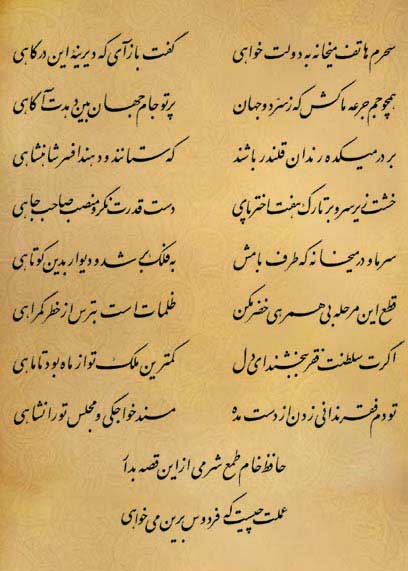 سحرم هاتف میخانه به دولت خواهی گفت بازآی که دیرینهٔ این درگاهی
همچو جم جرعه ما کش که ز سر دو جهان پرتو جام جهان بین دهدت آگاهی
بر در میکده رندان قلندر باشند که ستانند و دهند افسر شاهنشاهی
خشت زیر سر و بر تارک هفت اختر پای دست قدرت نگر و منصب صاحب جاهی
سر ما و در میخانه که طرف بامش به فلک بر شد و دیوار بدین کوتاهی
قطع این مرحله بی همرهی خضر مکن ظلمات است بترس از خطر گمراهی
اگرت سلطنت فقر ببخشند ای دل کمترین ملک تو از ماه بود تا ماهی
تو دم فقر ندانی زدن از دست مده مسند خواجگی و مجلس تورانشاهی
حافظ خام طمع شرمی از این قصه بدار
عملت چیست که فردوس برین می خواهی